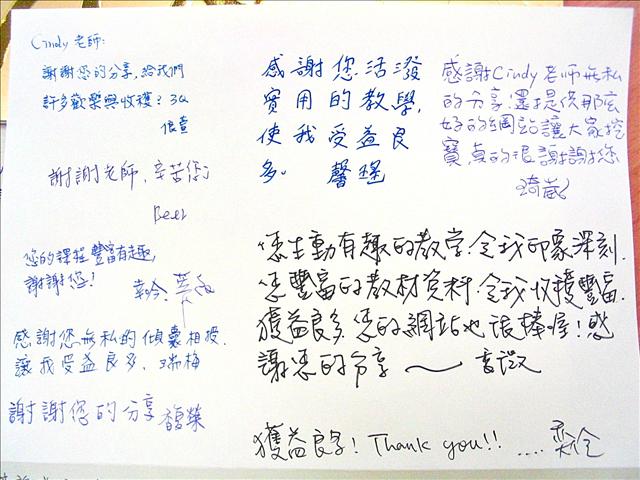 Cindy 老師:
謝謝您的分享,給我們
許多歡樂與收穫? 3Q
謝謝老師、辛苦您
Beer
您的課程豐富有趣,
謝謝您!
感謝您無私的傾囊相授.
讓我受益良多. 瑞梅
謝謝您的分享 馥榮
感謝您活潑
實用的教學,
使我受益良
多。 馨瑾
感謝Cindy老師無私
的分享還提供那麼
好的網站讓大家挖
寶,真的很謝謝您
琦葳
您生動有趣的教學.令我印象深刻.
您豐富的教材資料.令我收穫豐富.
獲益良多.您的網站也很棒喔!感
謝您的分享
獲益良多! Thank you!! ....